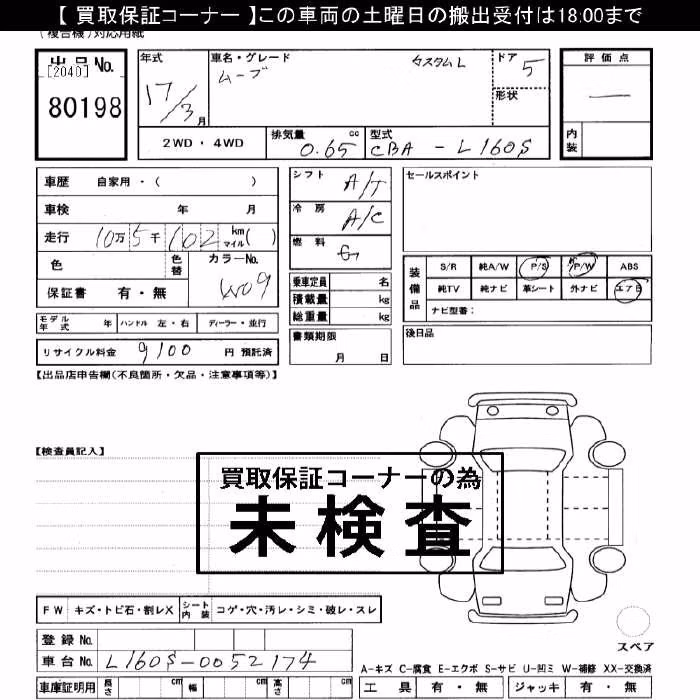 【 買取保証コーナー 】この車両の土曜日の搬出受付は18:00まで
(複合機)対応用紙
出品No.
[2040]
80198
年式
17/3月
車名・グレード
ムーブ
カスタムL
ドア
5
形状
評価点
—
内装
2WD ・ 4WD
排気量 cc
0.65
型式
CBA - L160S
車歴 自家用・( )
車検 年 月
走行 10万 5千 102 km マイル ( )
色
色替
カラーNo.
W09
保証書 有・無
シフト
A/T
冷房
A/C
燃料
G
乗車定員 名
積載量 kg
総重量 kg
セールスポイント
装備品
S/R 純A/W P/S P/W ABS
純TV 純ナビ 革シート 外ナビ エアB
ナビ型番:
モデル年式 年 ハンドル 左・右 ディーラー・並行
リサイクル料金 9100 円 預託済
書類期限
月 日
後日品
【出品店申告欄(不良箇所・欠品・注意事項等)】
【検査員記入】
買取保証コーナーの為
未検査
FW キズ・トビ石・割レX シート内装 コゲ・穴・汚レ・シミ・破レ・スレ
登録No.
車台No. L160S-0052174
スペア
A-キズ C-腐食 E-エクボ S-サビ U-凹ミ W-補修 XX-交換済
車庫証明用 長さ cm 幅 cm 高さ cm
工具 有・無 ジャッキ 有・無